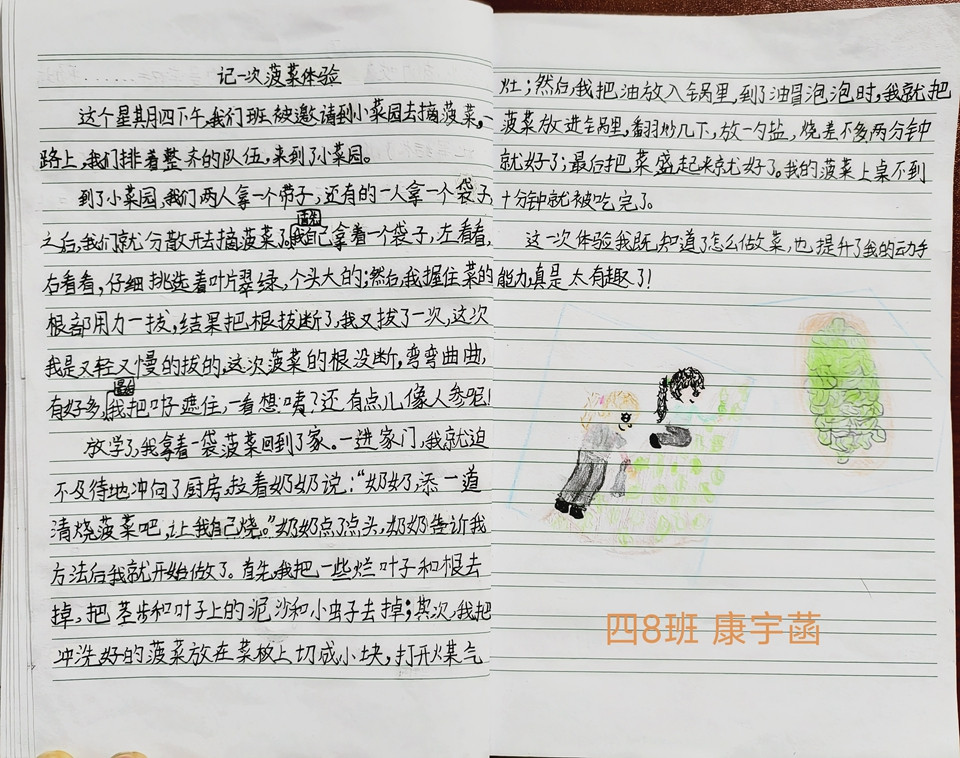 记一次菠菜体验
这个星期四下午,我们班被邀请到小菜园去摘菠菜,一
路上,我们排着整齐的队伍,来到了小菜园。
到了小菜园,我们两人拿一个带子,还有的一人拿一个袋子,
之后,我们就分散开去摘菠菜了。首先我自己拿着一个袋子,左看看,
右看看,仔细挑选着叶片翠绿,个头大的;然后,我握住菜的
根部用力一拔,结果把根拔断了,我又拔了一次,这次
我是又轻又慢的拔的,这次菠菜的根没断,弯弯曲曲,
有好多,最后我把叶子遮住,一看想:咦?还有点儿像人参呢!
放学了,我拿着一袋菠菜回到了家。一进家门,我就迫
不及待地冲向了厨房,拉着奶奶说:“奶奶,添一道
清烧菠菜吧,让我自己烧。”奶奶点了点头,奶奶告诉我
方法后我就开始做了。首先,我把一些烂叶子和根去
掉,把茎步和叶子上的泥沙和小虫子去掉;其次,我把
冲洗好的菠菜放在菜板上切成小块,打开煤气
灶;然后,我把油放入锅里,到了油冒泡泡时,我就把
菠菜放进锅里,翻羽炒几下,放一勺盐,烧差不多两分钟
就好了;最后把菜盛起来就好了。我的菠菜上桌不到
十分钟就被吃完了。
这一次体验我既知道了怎么做菜,也提升了我的动手
能力,真是太有趣了!
四8班 康宇菡